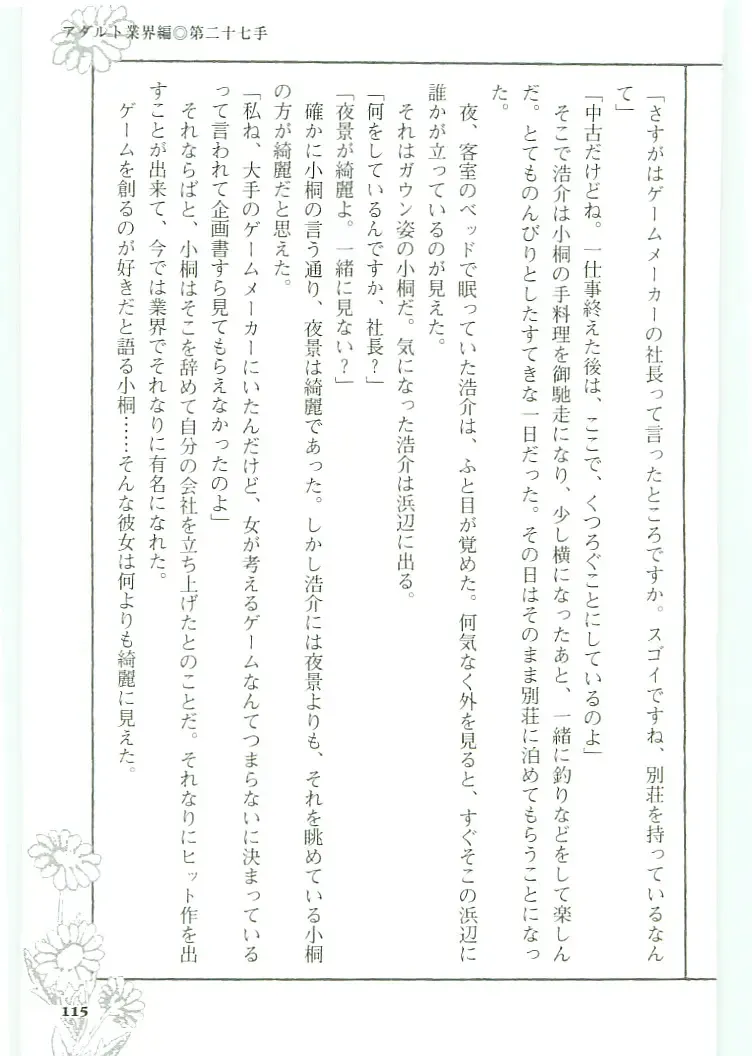 アダルト業界編◎第二十七手
「さすがはゲームメーカーの社長って言ったところですか。スゴイですね、別荘を持っているなん
て」
「中古だけどね。一仕事終えた後は、ここで、くつろぐことにしているのよ」
そこで浩介は小桐の手料理を御馳走になり、少し横になったあと、一緒に釣りなどをして楽しん
だ。とてものんびりとしたすてきな一日だった。その日はそのまま別荘に泊めてもらうことになっ
た。
夜、客室のベッドで眠っていた浩介は、ふと目が覚めた。何気なく外を見ると、すぐそこの浜辺に
誰かが立っているのが見えた。
それはガウン姿の小桐だ。気になった浩介は浜辺に出る。
「何をしているんですか、社長？」
「夜景が綺麗よ。一緒に見ない？」
確かに小桐の言う通り、夜景は綺麗であった。しかし浩介には夜景よりも、それを眺めている小桐
の方が綺麗だと思えた。
「私ね、大手のゲームメーカーにいたんだけど、女が考えるゲームなんてつまらないに決まっている
って言われて企画書すら見てもらえなかったのよ」
それならばと、小桐はそこを辞めて自分の会社を立ち上げたとのことだ。それなりにヒット作を出
すことが出来て、今では業界でそれなりに有名になれた。
ゲームを創るのが好きだと語る小桐……そんな彼女は何よりも綺麗に見えた。
115